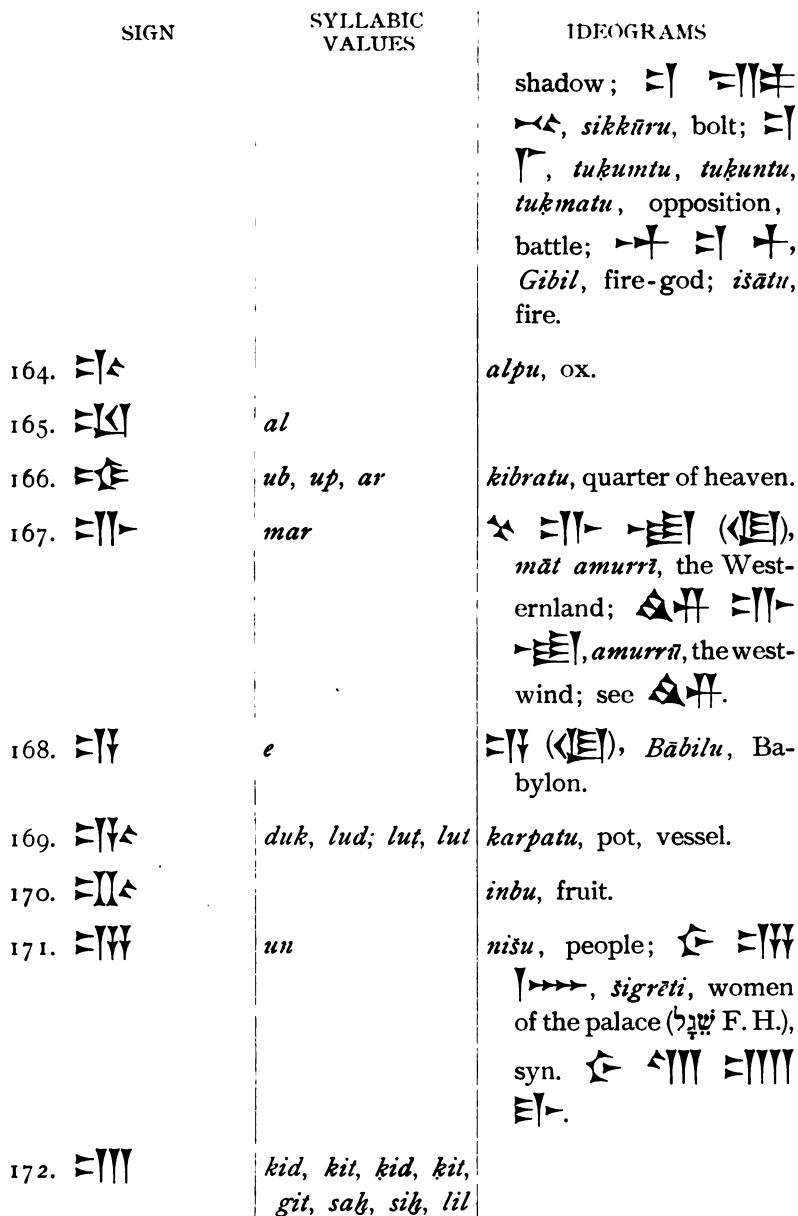 SIGN SYLLABIC VALUES IDEOGRAMS
shadow; 𒄑 𒊕
𒆰, sikkūru, bolt; 𒄑
𒇲, tuḳumtu, tuḳuntu,
tuḳmatu, opposition,
battle; 𒀭 𒄑 𒁇,
Gibil, fire-god; išātu,
fire.
164. 𒄞 alpu, ox.
165. 𒀠 al
166. 𒌒 ub, up, ar kibratu, quarter of heaven.
167. 𒈥 mar 𒆳 𒈥 𒌅 (𒆠),
māt amurrī, the West-
ernland; 𒅎 𒈥
𒌅, amurrū, the west-
wind; see 𒅎.
168. 𒂊 e 𒂊 (𒆠), Bābilu, Ba-
bylon.
169. 𒂁 duk, lud; luṭ, lut karpatu, pot, vessel.
170. inbu, fruit.
171. 𒌦 un nišu, people; 𒊩 𒌦
𒎌, šigrēti, women
of the palace (שֵׁגָל F. H.),
syn. 𒊩
172. 𒆤 kid, kit, ḳid, ḳit,
git, saḫ, siḫ, lil